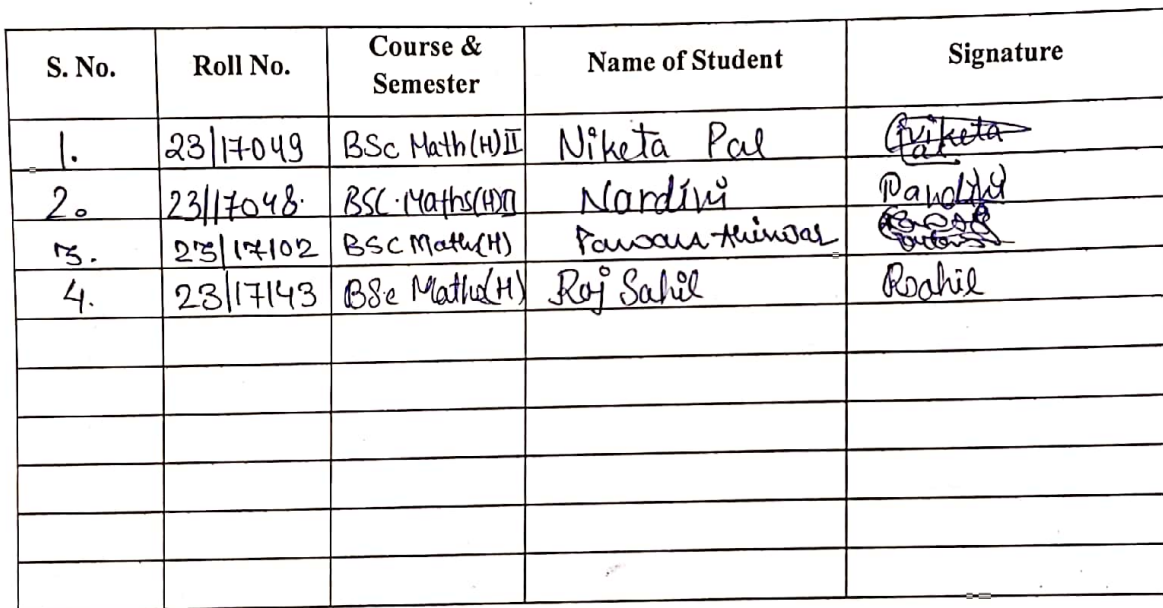 S. No. Roll No. Course & Semester Name of Student Signature
1. 23/17049 BSc Math(H)II Niketa Pal Niketa
2. 23/17048. BSC.Maths(H)II Nandini Nandini
3. 23/17102 BSC Math(H) Pawan
4. 23/17143 BSc Maths(H) Raj Sahil RSahil